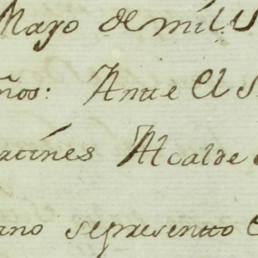 Mayo de mil s
ños: Ante el S
atines Alcalde
ano sepresento